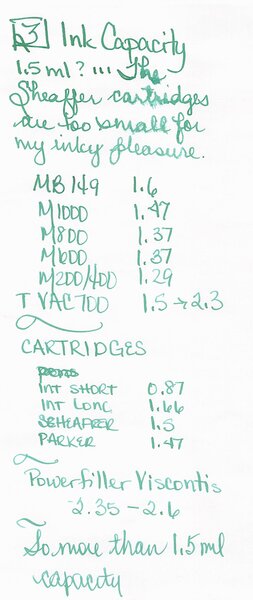 3 Ink Capacity
1.5 ml? ... The
Sheaffer cartridges
are too small for
my inky pleasure.
MB 149 1.6
M1000 1.47
M800 1.37
M600 1.37
M200/400 1.29
T VAC 700 1.5 → 2.3
CARTRIDGES
INT SHORT 0.87
INT LONG 1.66
SCHEAFFER 1.5
PARKER 1.47
Powerfiller Viscontis
2.35 - 2.6
So more than 1.5 ml
capacity